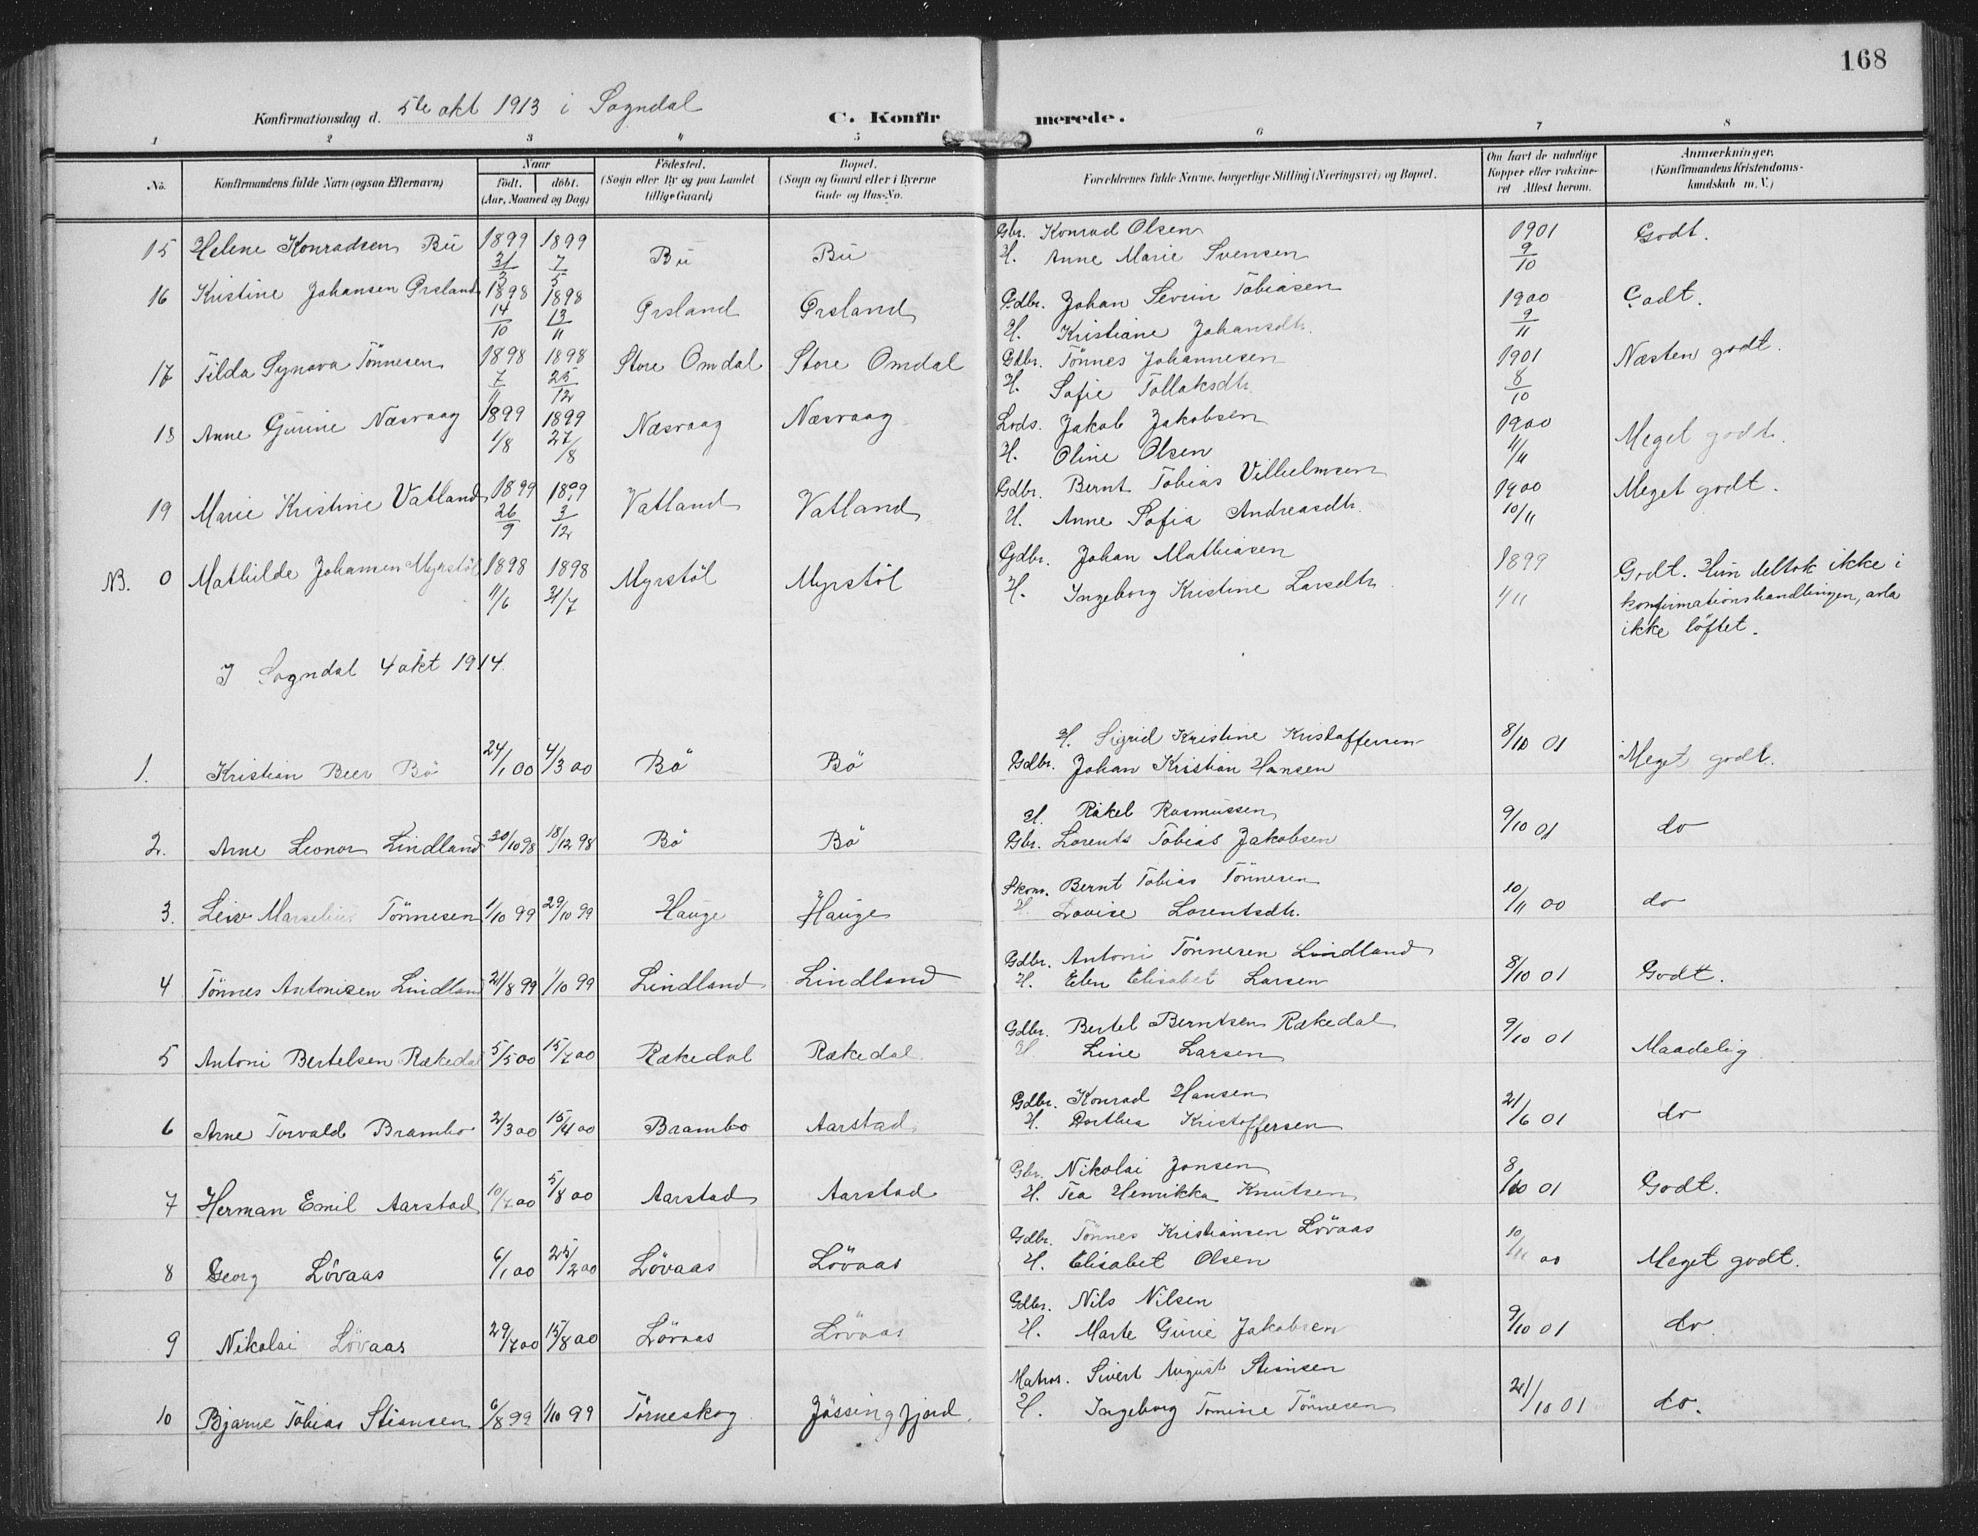 168
Konfirmationsdag d. 5te okt 1913 i Sogndal C. Konfirmerede.
1 2 3 4 5 6 7 8
No. Konfirmandens fulde Navn (ogsaa Efternavn) Naar født. døbt. (Aar, Maaned og Dag) Fødested. (Sogn eller By og paa Landet tillige Gaard) Bopæl. (Sogn og Gaard eller i Byerne Gade og Hus-No. Forældrenes fulde Navne, borgerlige Stilling (Næringsvei) og Bopæl. Om havt de naturlige Kopper eller vakcineret Attest herom. Anmærkninger. (Konfirmandens Kristendomskundskab m. V.)
15 Helene Konradsen Bu 1899 31/3 1899 7/5 Bu Bu Gbr. Konrad Olsen 1901 9/10 Godt.
H. Anne Marie Svensen
16 Kristine Johansen Orsland 1898 14/10 1898 13/11 Orsland Orsland Gdbr. Johan Severin Tobiasen 1900 9/11 Godt.
H. Kristiane Johansdtr.
17 Tilda Synova Tönnesen 1898 7/11 1898 25/12 Store Omdal Store Omdal Gdbr. Tönnes Johannesen 1901 8/10 Næsten godt.
H. Sofie Tollaksdtr.
18 Anne Gurine Næsvaag 1899 1/8 1899 27/8 Næsvaag Næsvaag Lods. Jakob Jakobsen 1900 Meget godt.
H. Oline Olsen
19 Marie Kristine Vatland 1899 26/9 1899 3/12 Vatland Vatland Gdbr. Bernt Tobias Vilhelmsen 1900 10/11 Meget godt.
H. Anne Sofia Andreasdtr.
NB. 0 Mathilde Johansen Myrstöl 1898 11/6 1898 31/7 Myrstöl Myrstöl Gdbr. Johan Mathiasen 1899 1/11 Godt. Hun deltok ikke i
H. Ingeborg Kristine Larsdtr. konfirmationshandlingen, avla
ikke löftet.
I Sogndal 4 okt 1914.
H. Sigrid Kristine Kristoffersen
1. Kristian Beer Bö 24/1 00 4/3 00 Bö Bö Gdbr. Johan Kristian Hansen 8/10 01 Meget godt.
H. Rakel Rasmussen
2. Arne Leonor Lindland 30/10 98 18/12 98 Bö Bö Gbr. Lorents Tobias Jakobsen 9/10 01 do
3. Leiv Marselius Tönnesen 1/10 99 29/10 99 Hauge Hauge Skom. Bernt Tobias Tönnesen 10/11 00 do
H. Lovise Lorentsdtr.
4 Tönnes Antonisen Lindland 21/8 99 1/10 99 Lindland Lindland Gdbr. Antoni Tönnesen Lindland 8/10 01 Godt.
H. Elen Elisabet Larsen
5 Antoni Bertelsen Rækedal 5/5 00 15/7 00 Rækedal Rækedal. Gdbr. Bertel Berntsen Rækedal 9/10 01 Maadelig
H Line Larsen
6 Arne Torvald Brambo 2/3 00 15/4 00 Brambo Aarstad Gdbr. Konrad Hansen 21/6 01 do
H. Dorthea Kristoffersen
7 Herman Emil Aarstad 10/7 00 5/8 00 Aarstad Aarstad Gbr. Nikolai Jonsen 8/10 01 Godt.
H. Tea Henrikka Knutsen
8 Georg Lövaas 6/1 00 25/2 00 Lövaas Lövaas Gdbr. Tönnes Kristiansen Lövaas 10/11 00 Meget godt.
H. Elisabet Olsen
9 Nikolai Lövaas 29/7 00 15/8 00 Lövaas Lövaas Gdbr. Nils Nilsen 9/10 01 do.
H. Marte Gurie Jakobsen
10 Bjarne Tobias Stiansen 6/8 99 1/10 99 Törneskog Jössingfjord. Matros. Sivert August Stiansen 21/10 01 do.
H. Ingeborg Tomine Tönnesen